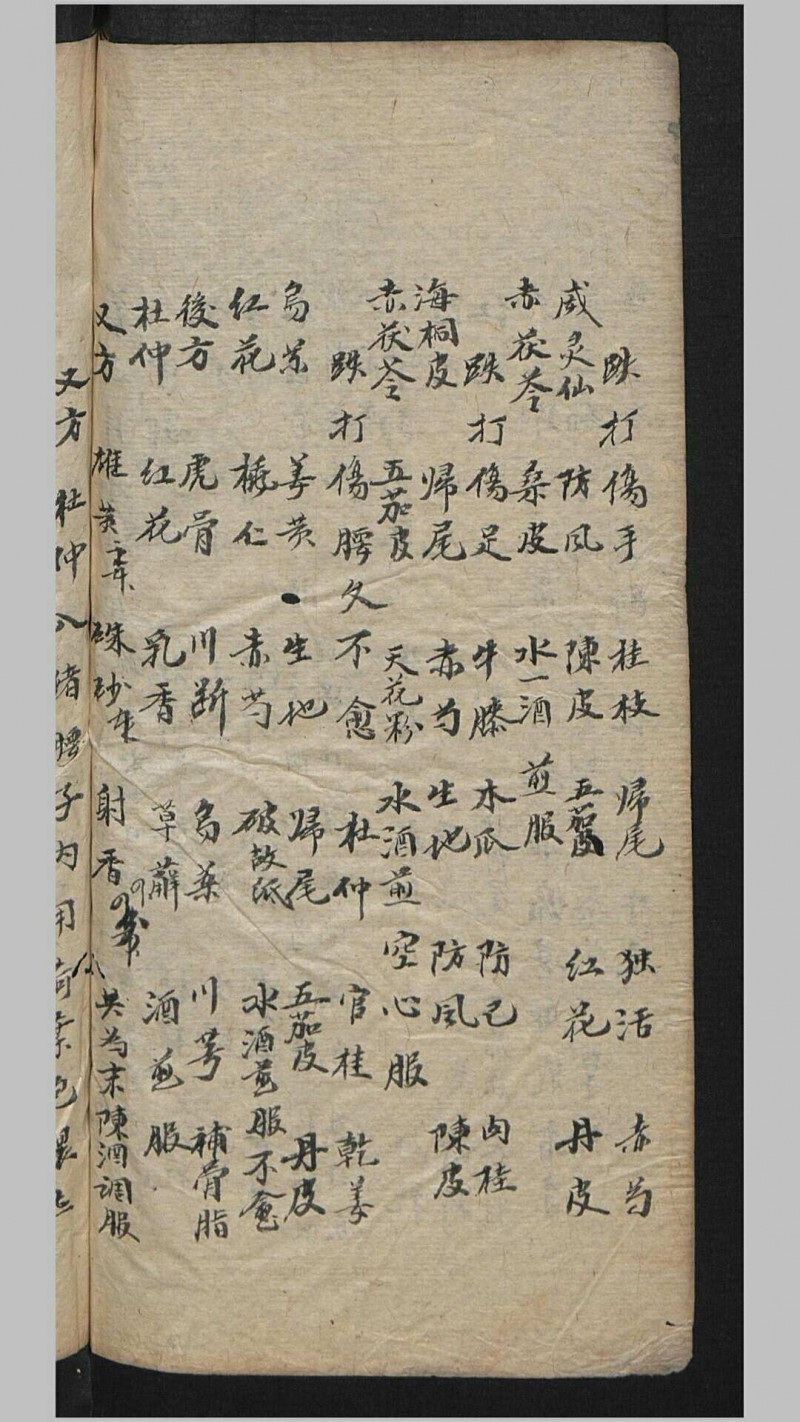 跌打傷手 桂枝 歸尾 独活 赤芍
威灵仙 防風 陳皮 五茄皮 红花 丹皮
赤茯苓 桑皮 水一酒 煎服
跌打傷足 牛膝 木瓜 防已 肉桂
海桐皮 歸尾 赤芍 生地 防風 陳皮
赤茯苓 五茄皮 天花粉 水酒煎空心服
跌打傷腰久不愈 杜仲 官桂 乾姜
烏药 姜黄 生地 歸尾 五茄皮 丹皮
红花 桃仁 赤芍 破故纸 水酒煎服不愈
後方 虎骨 川断 烏药 川芎 補骨脂
杜仲 红花 乳香 草薢 酒煎服
又方 雄黄 硃砂 射香 共為末陳酒調服
又方 杜仲 猪腰子内用荷葉包